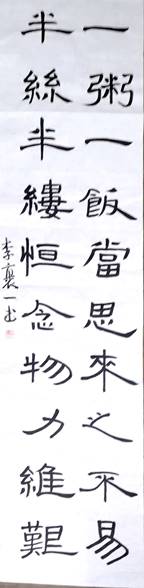 一粥一飯當思來之不易
半絲半縷恒念物力維艱
李襄一書